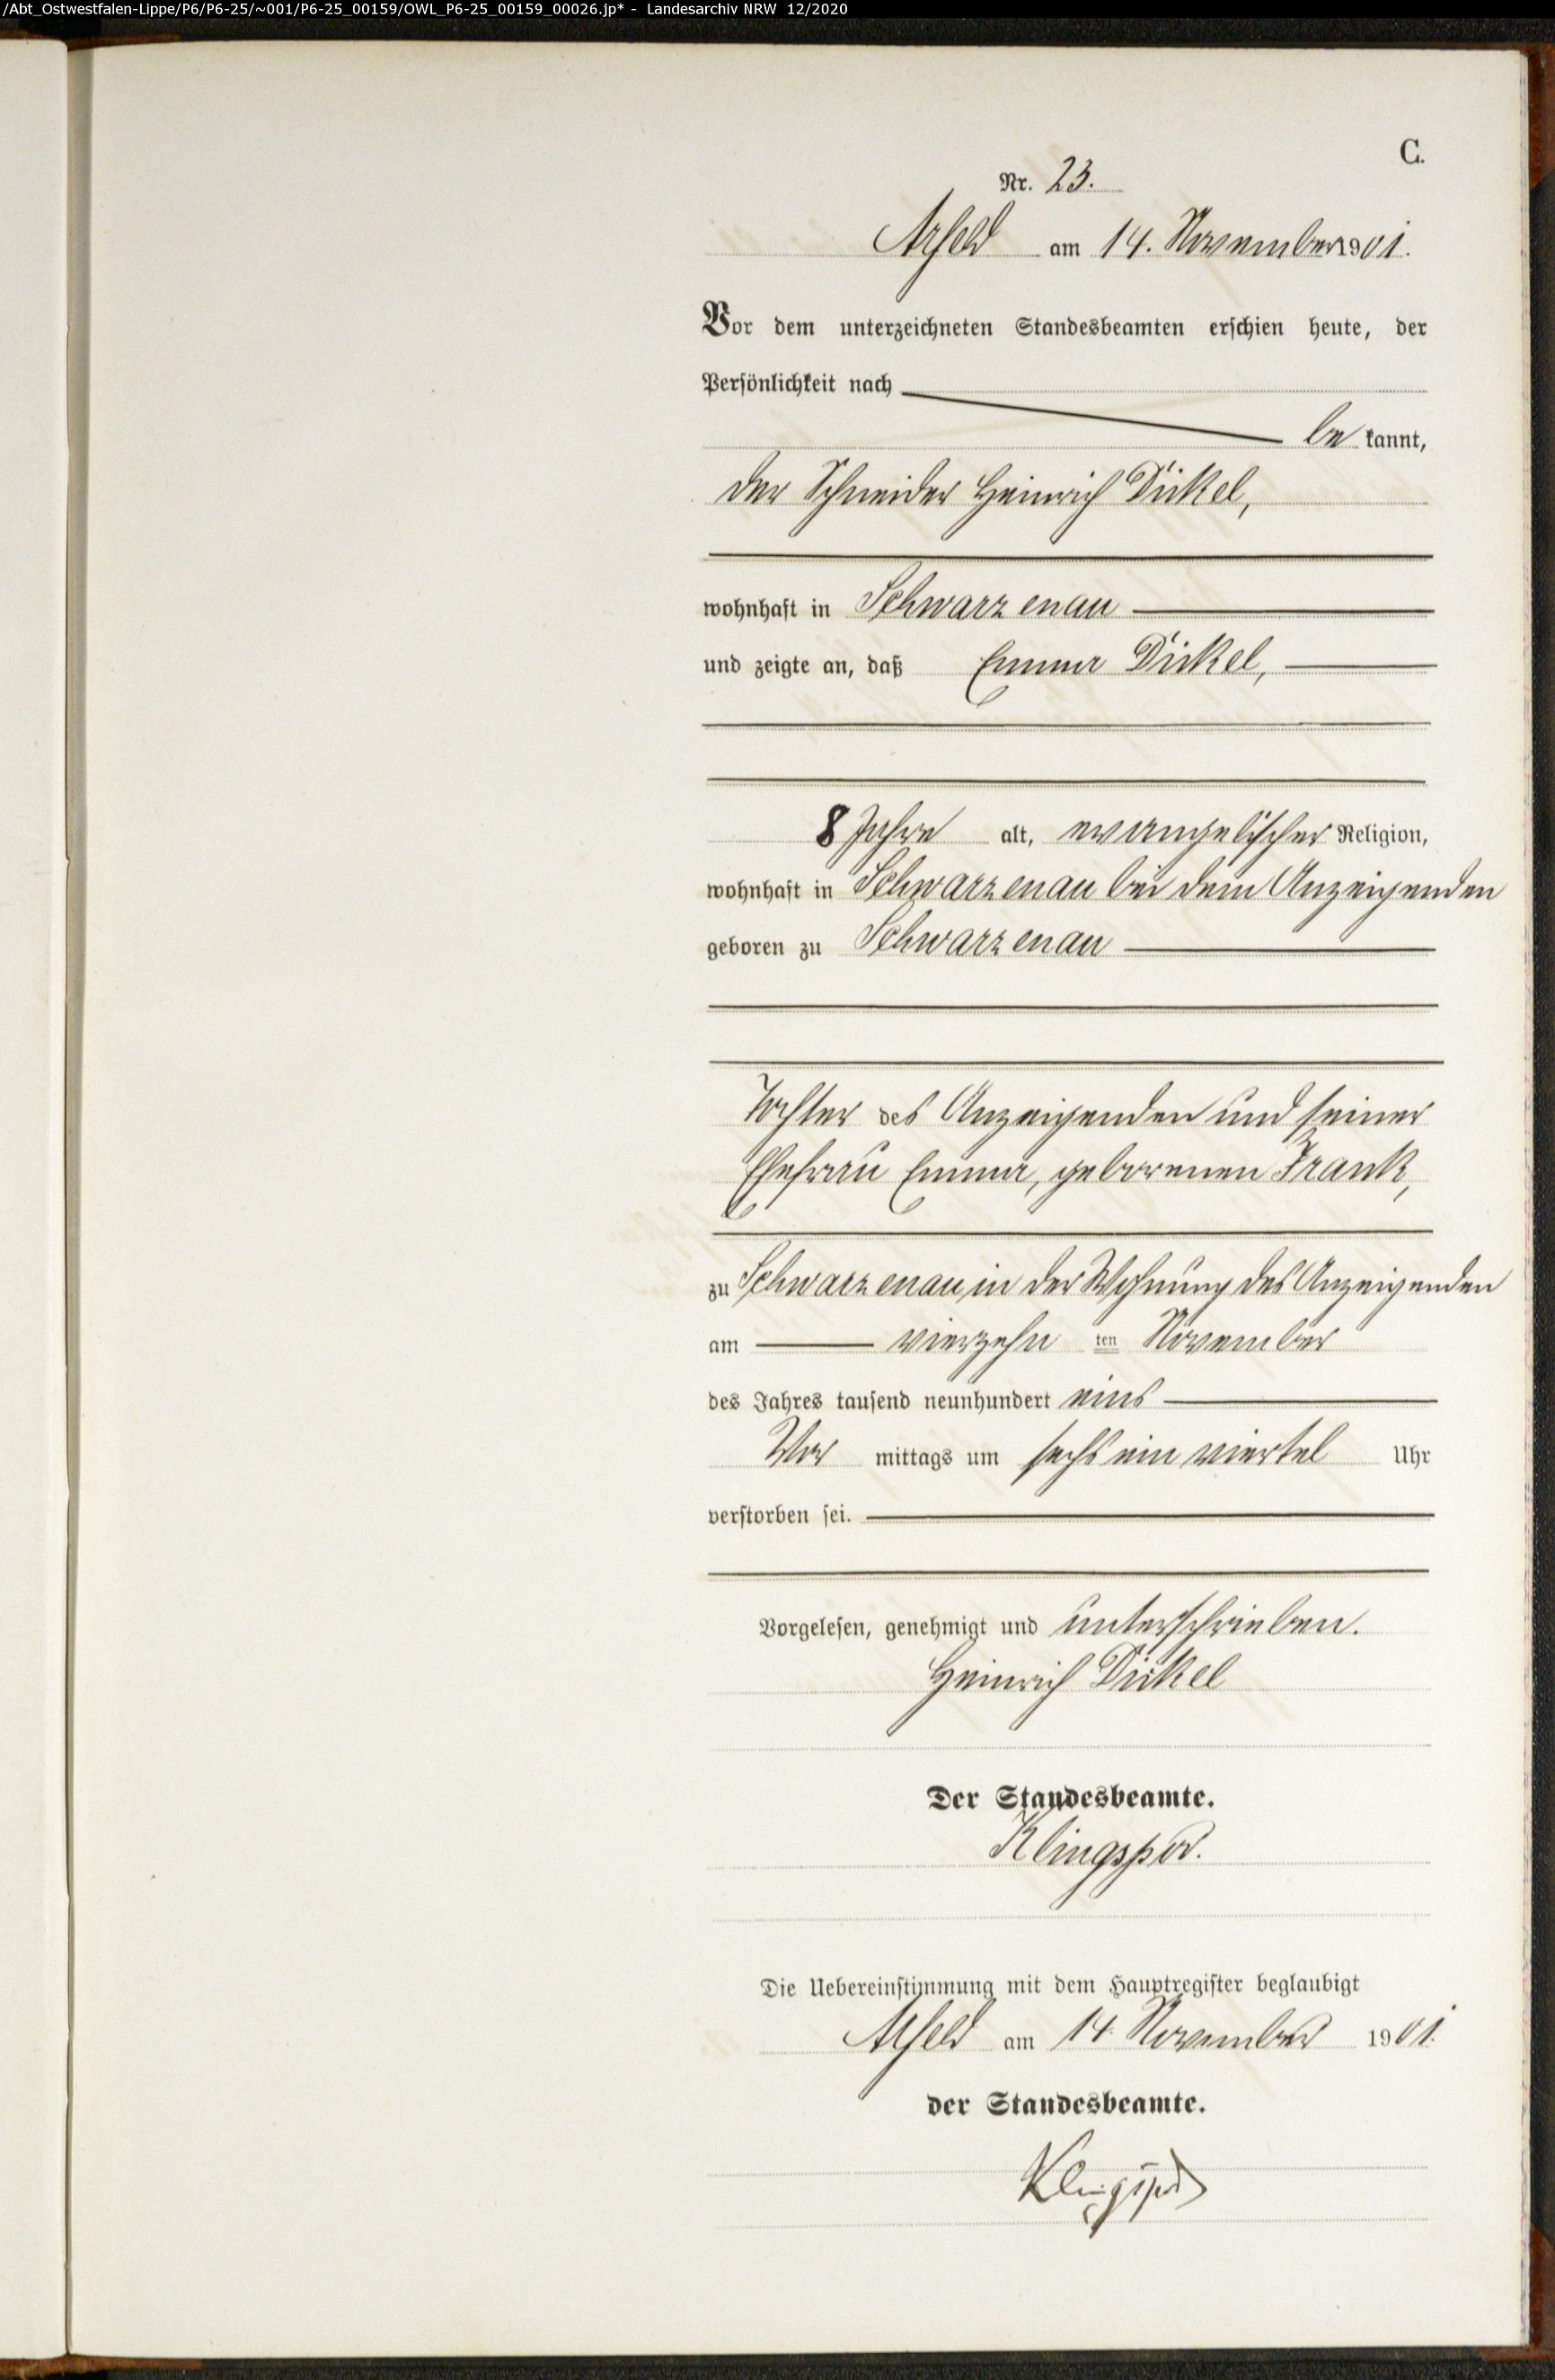 /Abt_Ostwestfalen-Lippe/P6/P6-25/~001/P6-25_00159/OWL_P6-25_00159_00026.jp* - Landesarchiv NRW 12/2020
C.
Nr. 23.
Arfeld am 14. November 1901.
Vor dem unterzeichneten Standesbeamten erschien heute, der
Persönlichkeit nach
be kannt,
der Schneider Heinrich Dickel,
wohnhaft in Schwarzenau
und zeigte an, daß Emma Dickel,
8 Jahre alt, evangelischer Religion,
wohnhaft in Schwarzenau bei dem Anzeigenden
geboren zu Schwarzenau
Tochter des Anzeigenden und seiner
Ehefrau Emma, geborenen Frank,
zu Schwarzenau, in der Wohnung des Anzeigenden
am vierzehn ten November
des Jahres tausend neunhundert eins
Vor mittags um sechs ein viertel Uhr
verstorben sei.
Vorgelesen, genehmigt und unterschrieben.
Heinrich Dickel
Der Standesbeamte.
Klingspor.
Die Uebereinstimmung mit dem Hauptregister beglaubigt
Arfeld am 14. November 1901.
der Standesbeamte.
Klingspor